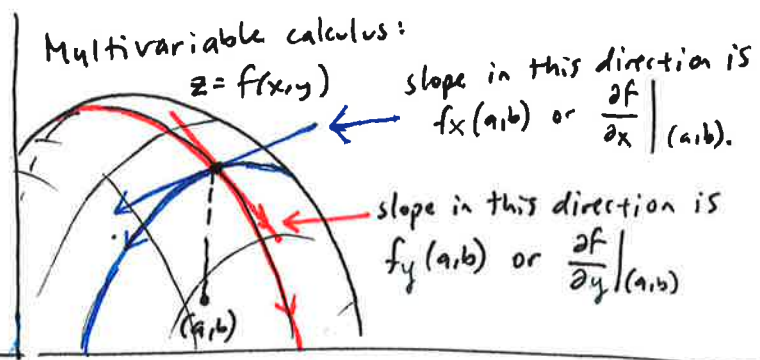 Multivariable calculus:
z = f(x,y)
slope in this direction is
fx (a,b) or ∂f/∂x |(a,b).
slope in this direction is
fy (a,b) or ∂f/∂y |(a,b)
(a,b)